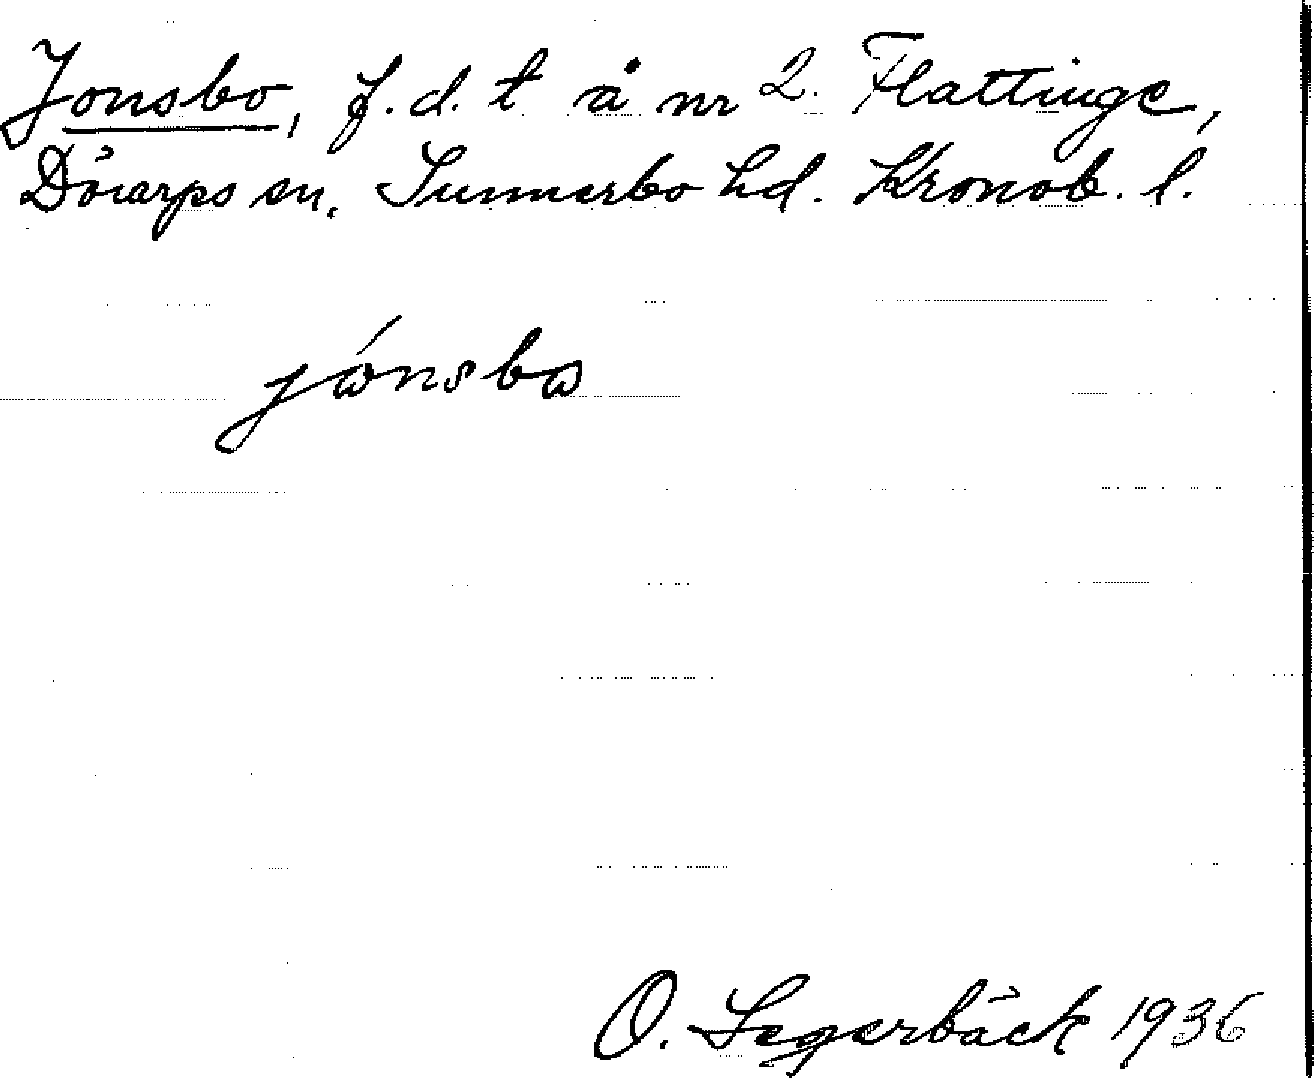 Jonsbo, f.d. t å nr 2. Flattinge,
Dörarps sn. Sunnerbo hd. Kronob. l.
jónsbo
O. Segerbäck 1936